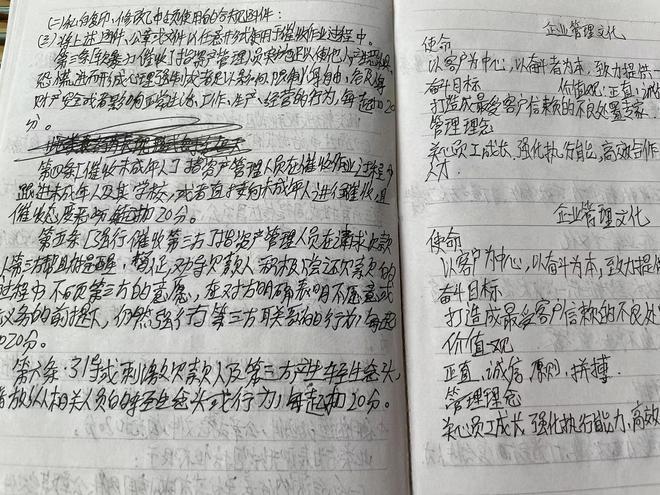 (二)私自复印、修改已中止使用的各类函件;
(三)将上述函件、公章或文件以任意形式套用于催收作业过程中。
第三条【软暴力催收】指资产管理人员实施足以使他人产生恐惧、
恐慌进而形成心理强制或者足以影响、限制人身自由、危及人身
财产安全或者影响正常生活、工作、生产、经营的行为,每起扣20
分。
第四条【催收未成年人】指资产管理人员在催收作业过程中
跟进未成年人及其学校,或者直接向未成年人进行催收,且
催收态度恶劣,每起扣20分。
第五条【强行催收第三方】指资产管理人员在请求欠款
人第三方帮且好提醒,劝导欠款人积极偿还欠款的
过程中不顾第三方的意愿,在对方明确表明不愿意或
义务的前提下,仍然强行与第三方联系的行为,每起
扣20分。
第六条【引导或刺激欠款人及第三方产生轻生念头,
放纵相关人员的轻生念头或行为】,每起扣20分。
企业管理文化
使命
以客户为中心,以奋斗者为本,致力提供一
奋斗目标 价值观:正直、诚信
打造成最受客户信赖的不良处置专家.
管理理念
关心员工成长、强化执行能,高效合作
人才.
企业管理文化
使命
以客户为中心,以奋斗为本,致力提供
奋斗目标
打造成最受客户信赖的不良处
价值观
正直、诚信、原则、拼搏.
管理理念
关心员工成长,强化执行能力,高效